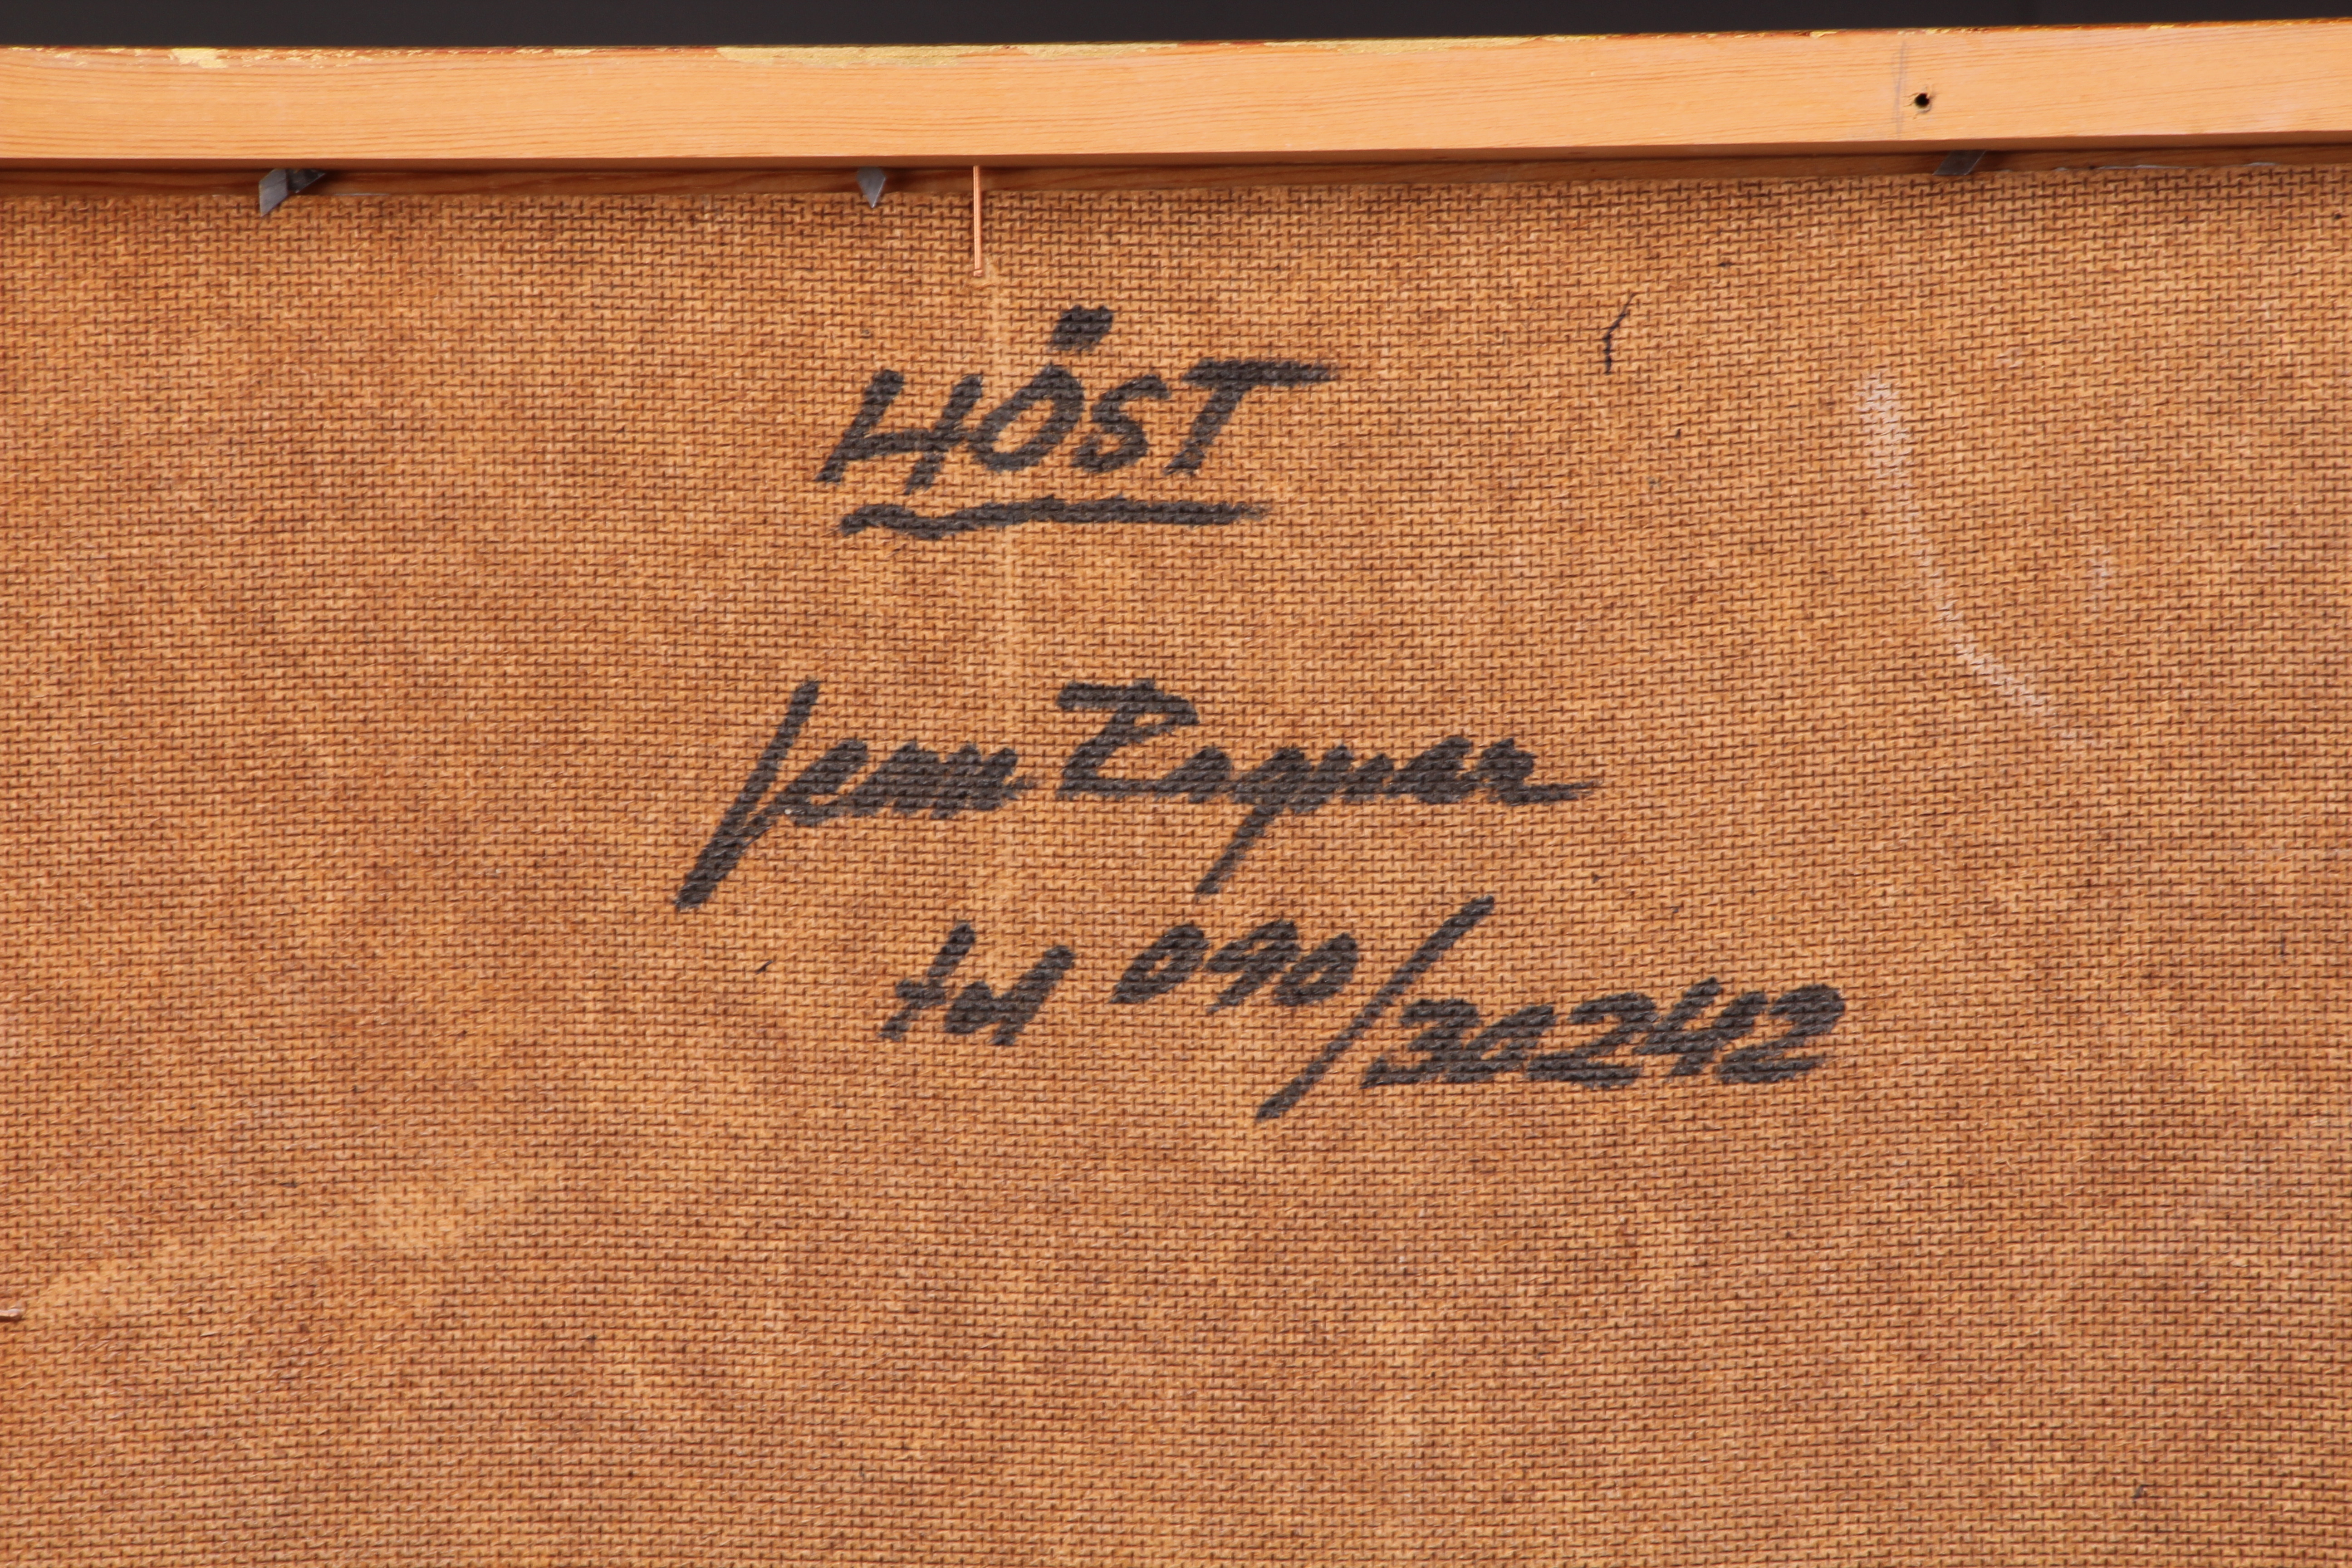 HÖST
Jenn Ragnar
tel 090/30242